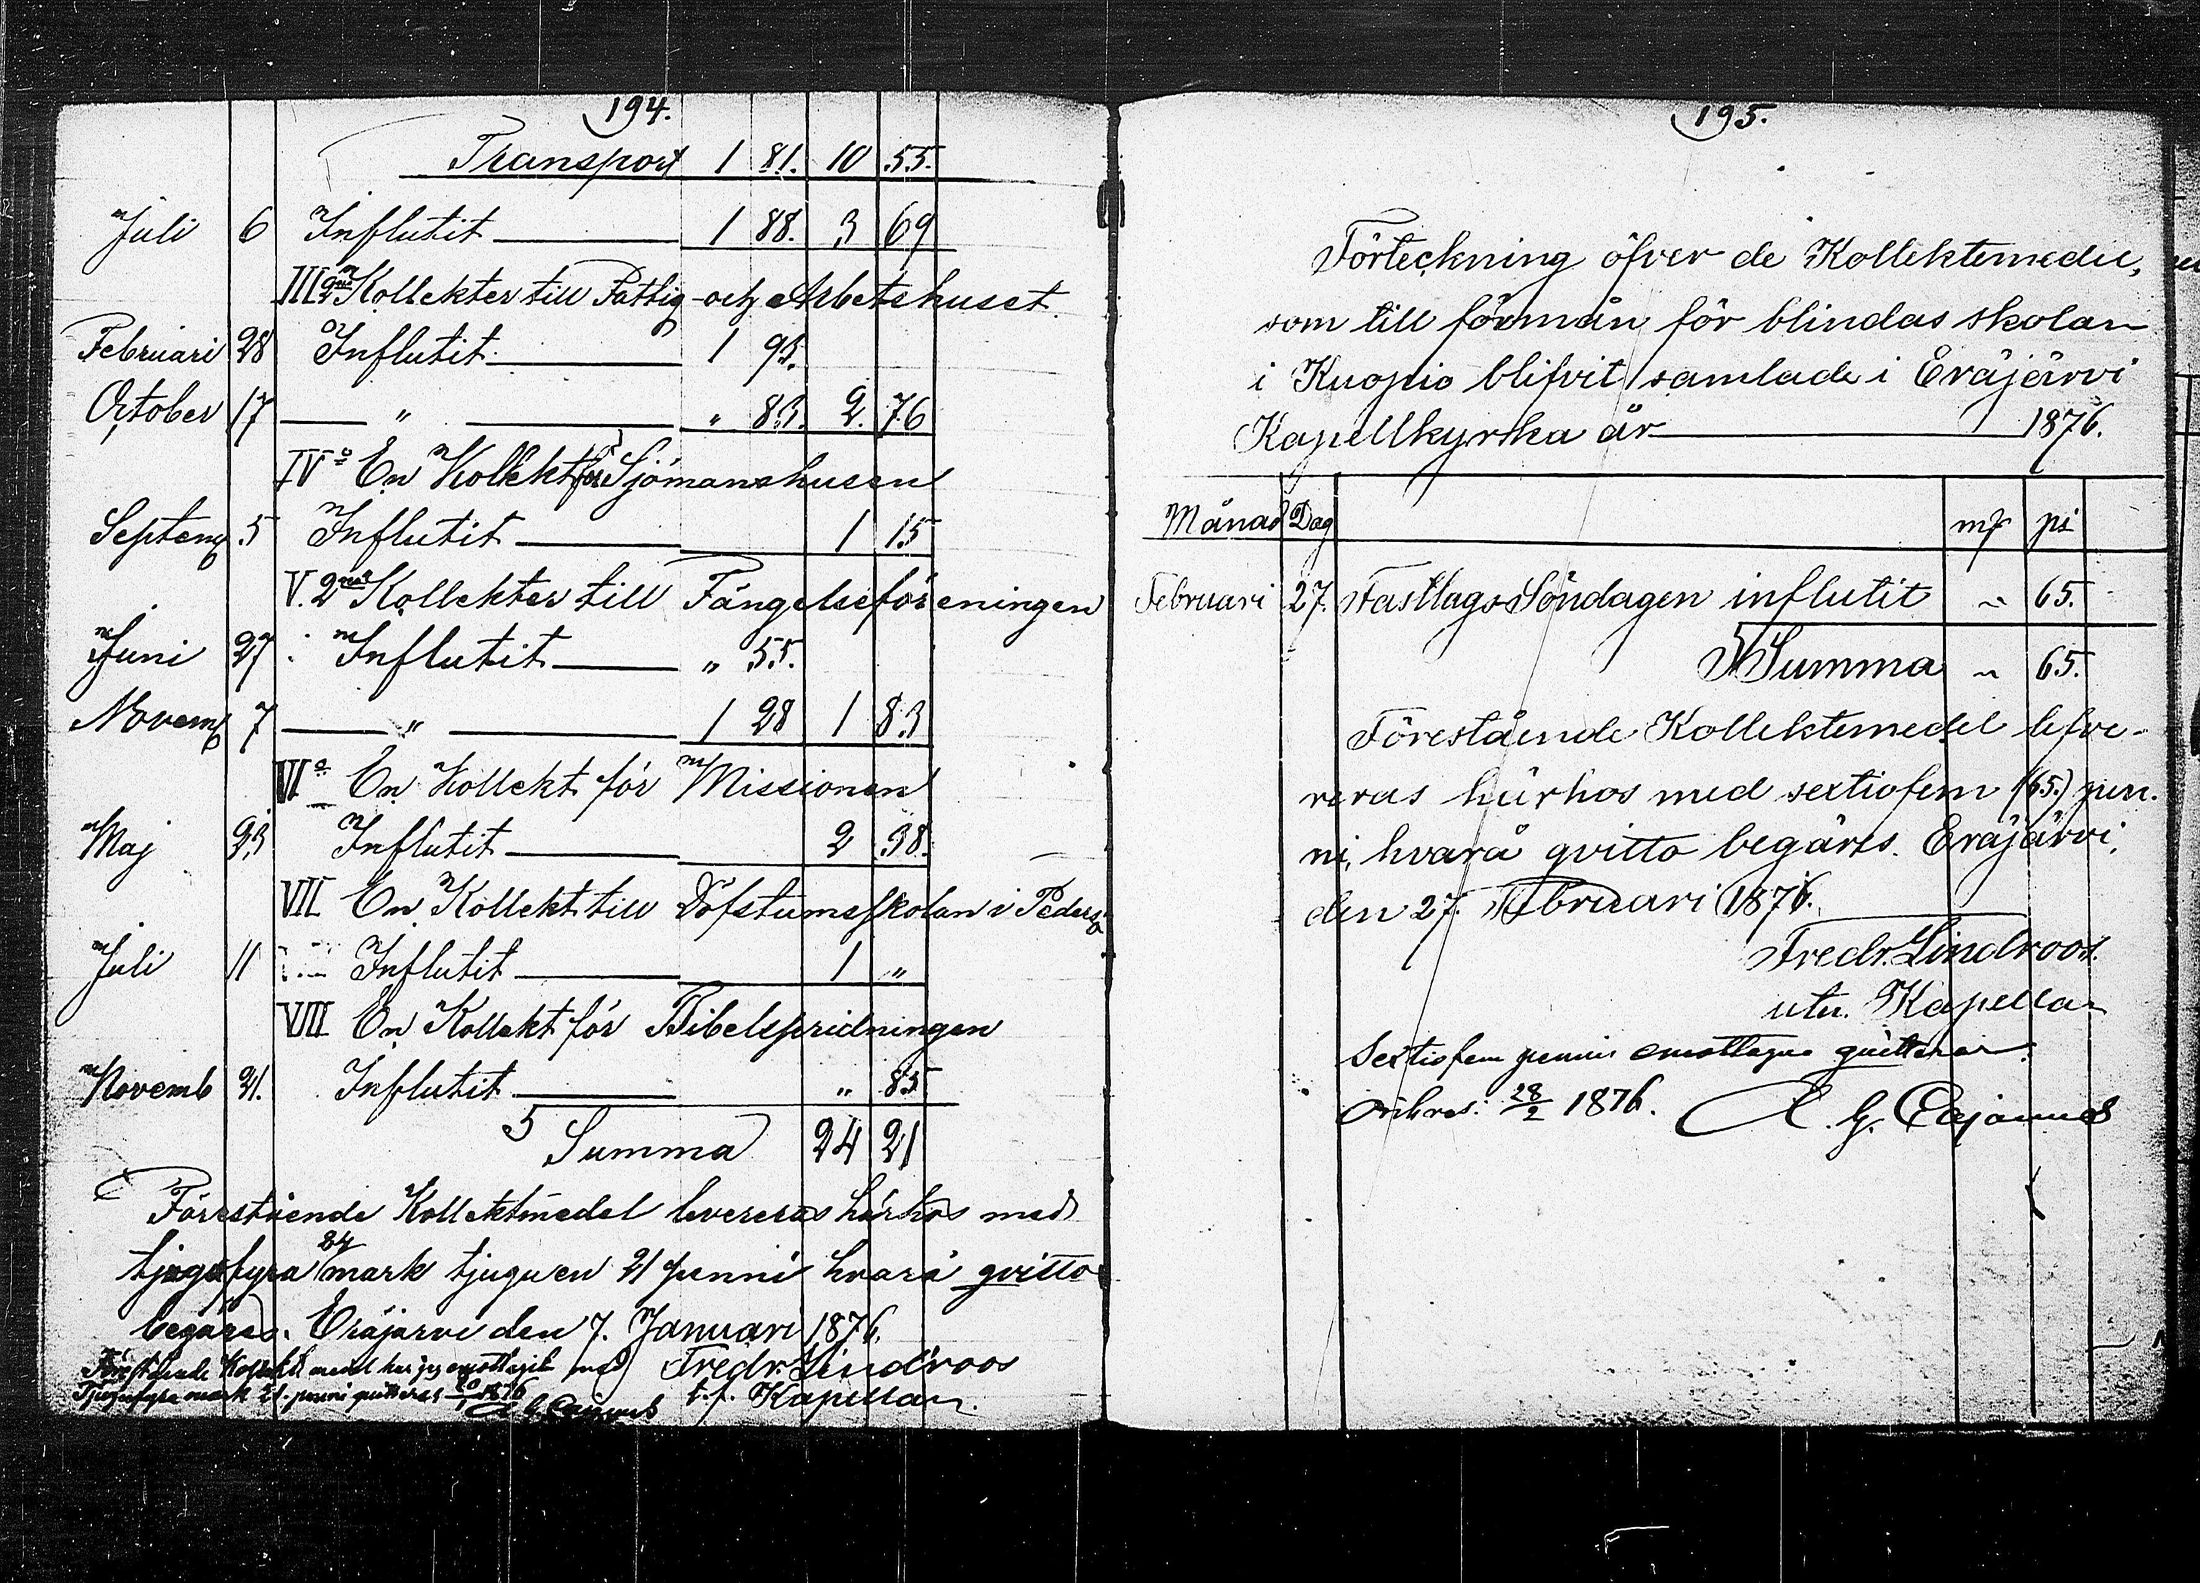 194.
Transport 1 81. 10 55.
Juli 6 Influtit 1 88. 3 69
III 2ne Kollekter till Fattig- och Arbetshuset.
Februari 28 Influtit. 1 93.
October 17 " " 83. 2. 76
IVo En Kollekt för Sjömanshusen
Septemb 5 Influtit 1 15
V. 2ne Kollekter till Fängelseföreningen
Juni 27 Influtit " 55.
Novemb 7 " 1 28 1 83
VIo En Kollekt för Missionen
Maj 23 Influtit 2 38.
VII En Kollekt till Döfstumskolan i Peders
Juli 11 Influtit 1 "
VIII En Kollekt för Bibelspridningen
Novemb 21. Influtit " 85
Summa 24 21
Förestående Kollektmedel levereras härhos med
tjugofyra 24 mark tjuguen 21 penni hvarå qvitto
begäres. Eräjärvi den 7. Januari 1876.
Förestående Kollekt medel har jag emottagit med Fredr. Lindroos
Tjugufyra mark 21. penni quitteras 1876 t.f. Kapellan.
A G Cajanus
195.
Förteckning öfver de Kollektemedel,
som till förmån för blindas skolan
i Kuopio blifvit samlade i Eräjärvi
Kapellkyrka år 1876.
Månad Dag mk pi
Februari 27. Fastlags Söndagen influtit " 65.
Summa " 65.
Förestående Kollektemedel lefve-
reras härhos med sextiofem (65.) pen-
ni, hvarå qvitto begäres. Eräjärvi,
den 27. Februari 1876.
Fredr. Lindroos.
utn. Kapellan
Sextiofem penni emottagna quitteras.
Orihvesi 28/2 1876. A. G. Cajanus